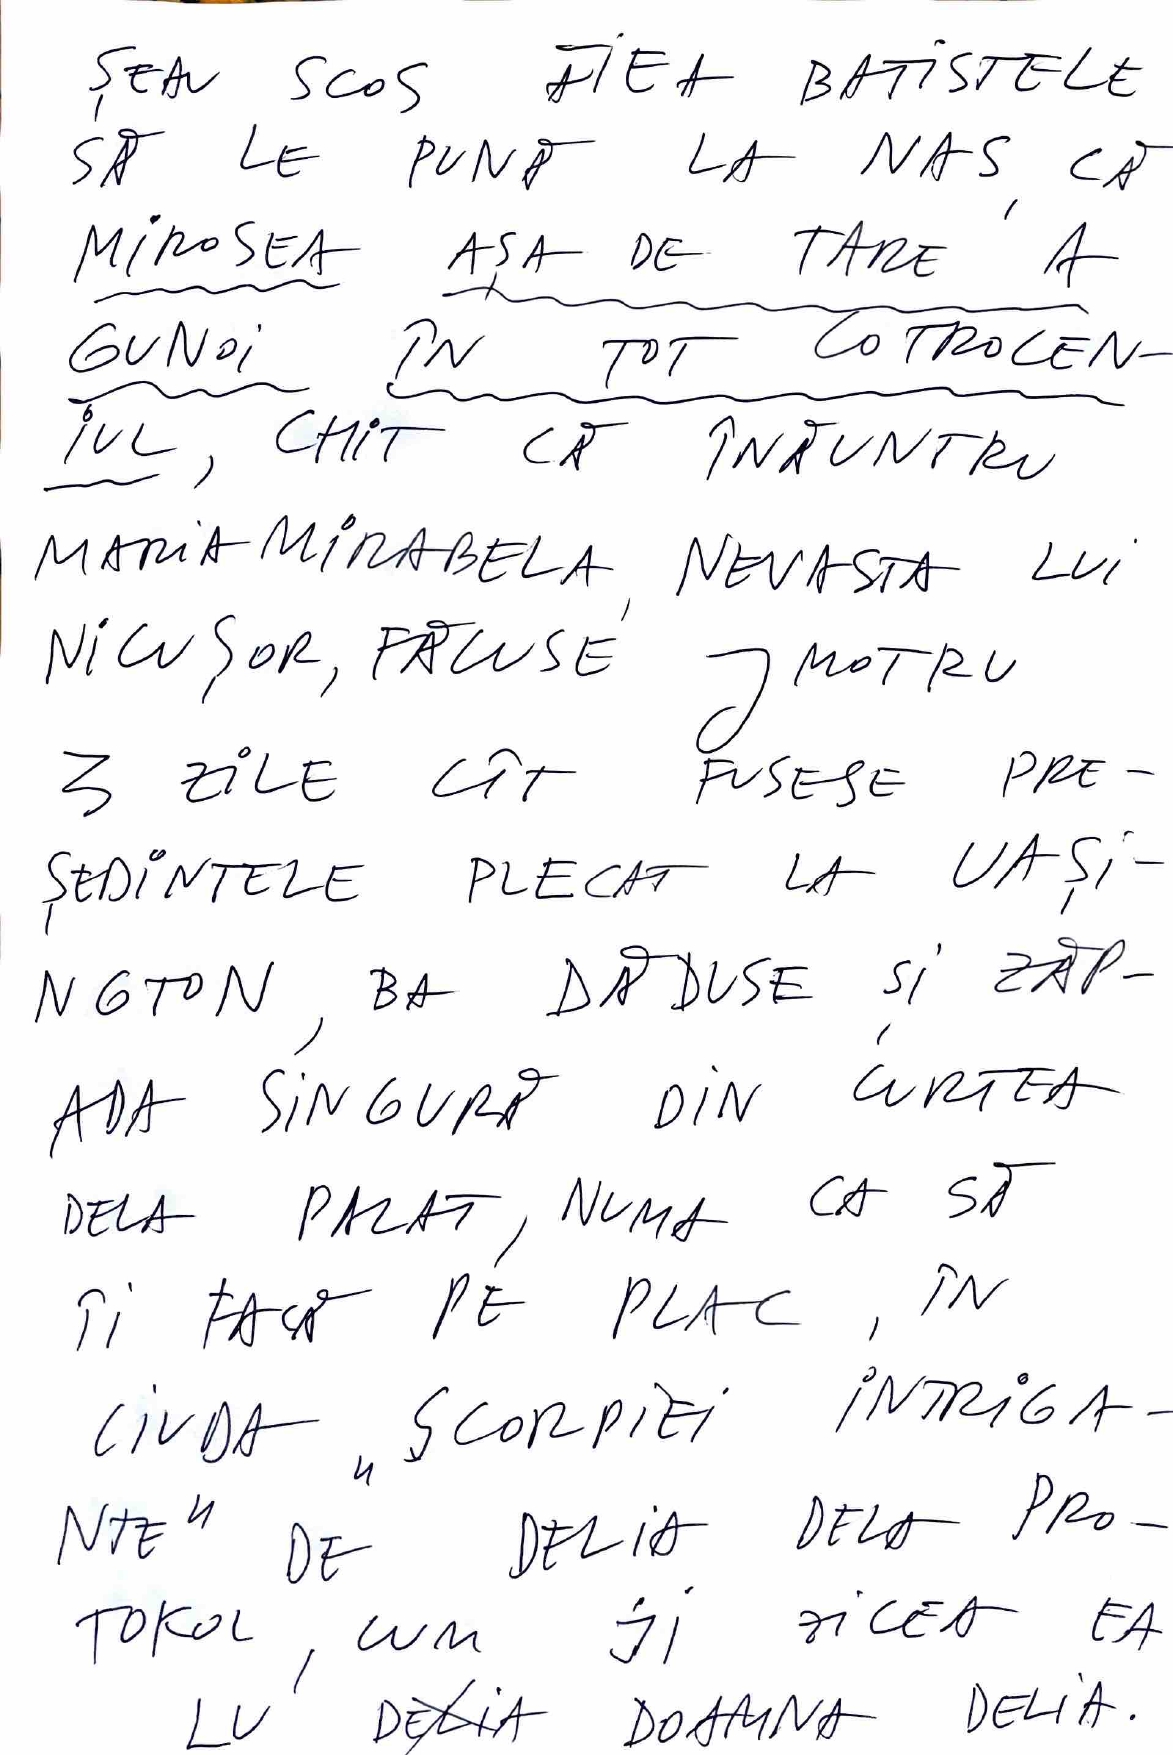 ȘEAU SCOS ĂIEA BATISTELE
SĂ LE PUNĂ LA NAS, CĂ
MIROSEA AȘA DE TARE A
GUNOI ÎN TOT COTROCEN-
IUL, CHIT CĂ ÎNĂUNTRU
MARIA MIRABELA, NEVASTA LUI
NICUȘOR, FĂCUSE JMOTRU
3 ZILE CÎT FUSESE PRE-
ȘEDINTELE PLECAT LA UAȘI-
NGTON, BA DĂDUSE ȘI ZĂP-
ADA SINGURĂ DIN CURTEA
DELA PALAT, NUMA CA SĂ
ÎI FACĂ PE PLAC, ÎN
CIUDA „SCORPIEI INTRIGA-
NTE" DE DELIA DELA PRO-
TOKOL, CUM ÎI ZICEA EA
LU DELIA DOAMNA DELIA.